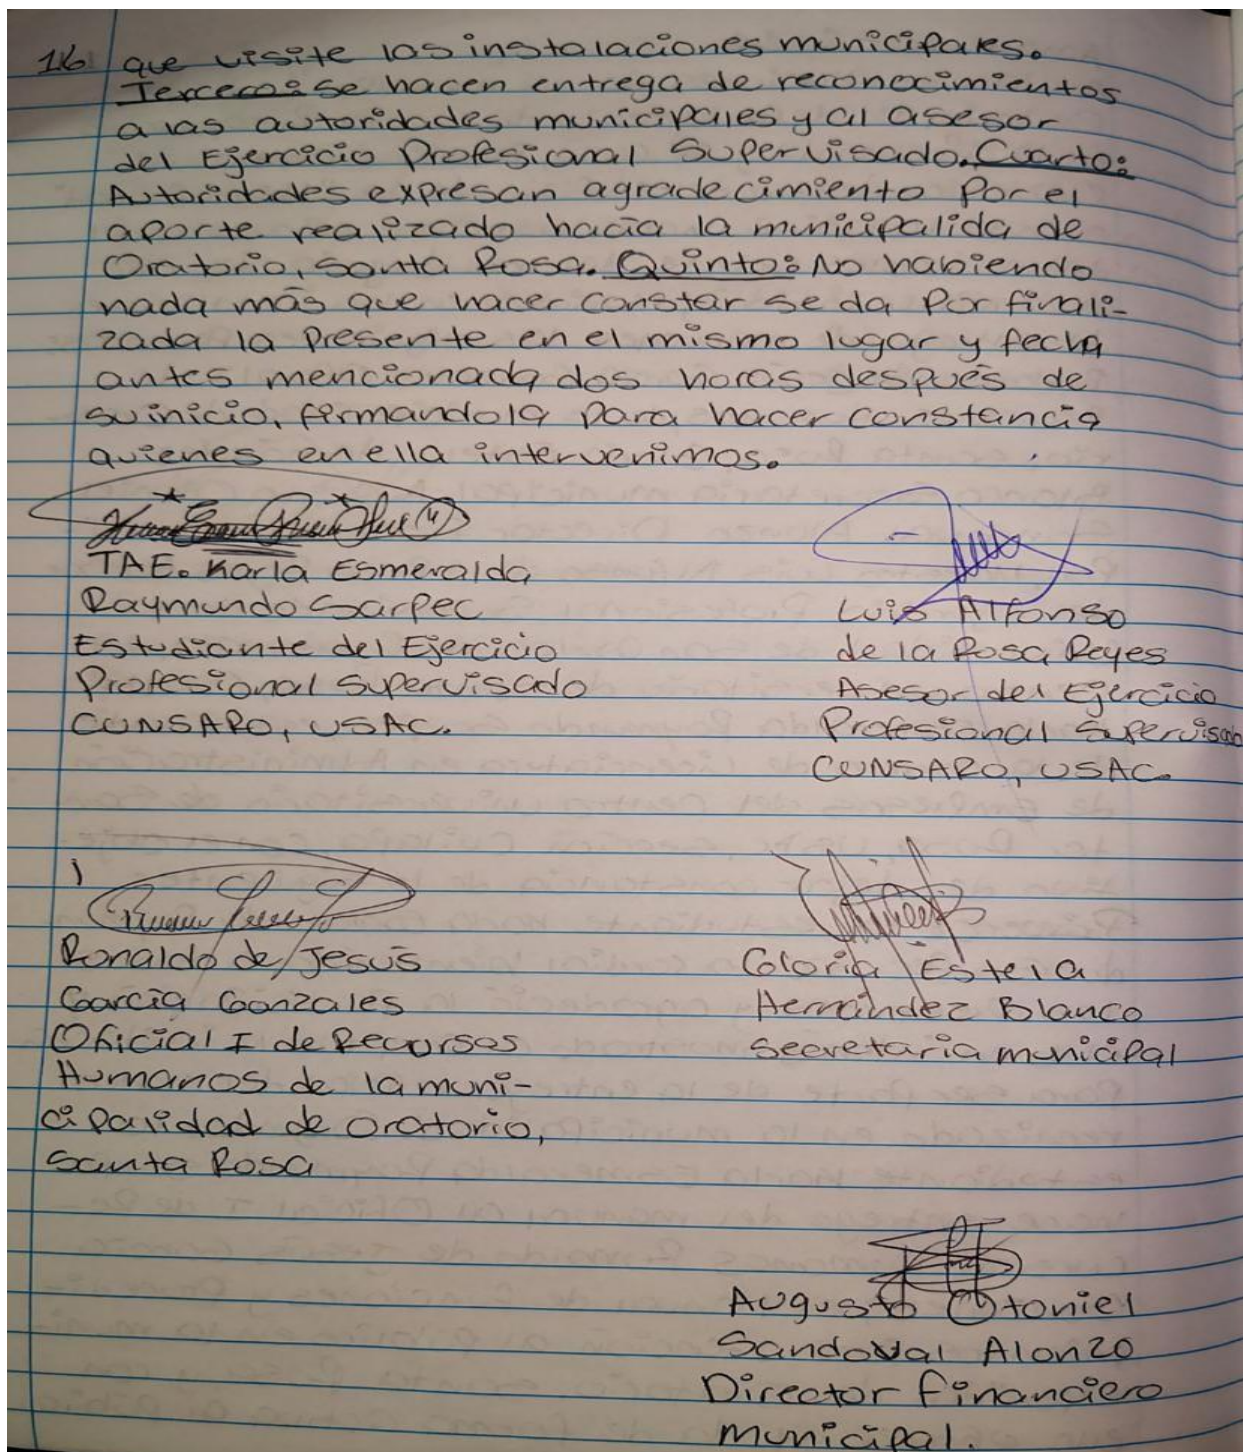 16 que visite las instalaciones municipales.
Tercero: se hacen entrega de reconocimientos
a las autoridades municipales y al asesor
del Ejercicio Profesional Supervisado. Cuarto:
Autoridades expresan agradecimiento por el
aporte realizado hacia la municipalida de
Oratorio, Santa Rosa. Quinto: No habiendo
nada más que hacer constar se da por finali-
zada la presente en el mismo lugar y fecha
antes mencionada dos horas después de
su inicio, firmandola para hacer constancia
quienes en ella intervenimos.
TAE. Karla Esmeralda
Raymundo Sarpec
Estudiante del Ejercicio
Profesional Supervisado
CUNSARO, USAC.
Luis Alfonso
de la Rosa Reyes
Asesor del Ejercicio
Profesional Supervisado
CUNSARO, USAC.
Ronaldo de Jesús
García Gonzales
Oficial I de Recursos
Humanos de la muni-
cipalidad de oratorio,
Santa Rosa
Gloria Estela
Hernández Blanco
Secretaria municipal
Augusto Otoniel
Sandoval Alonzo
Director Financiero
municipal.